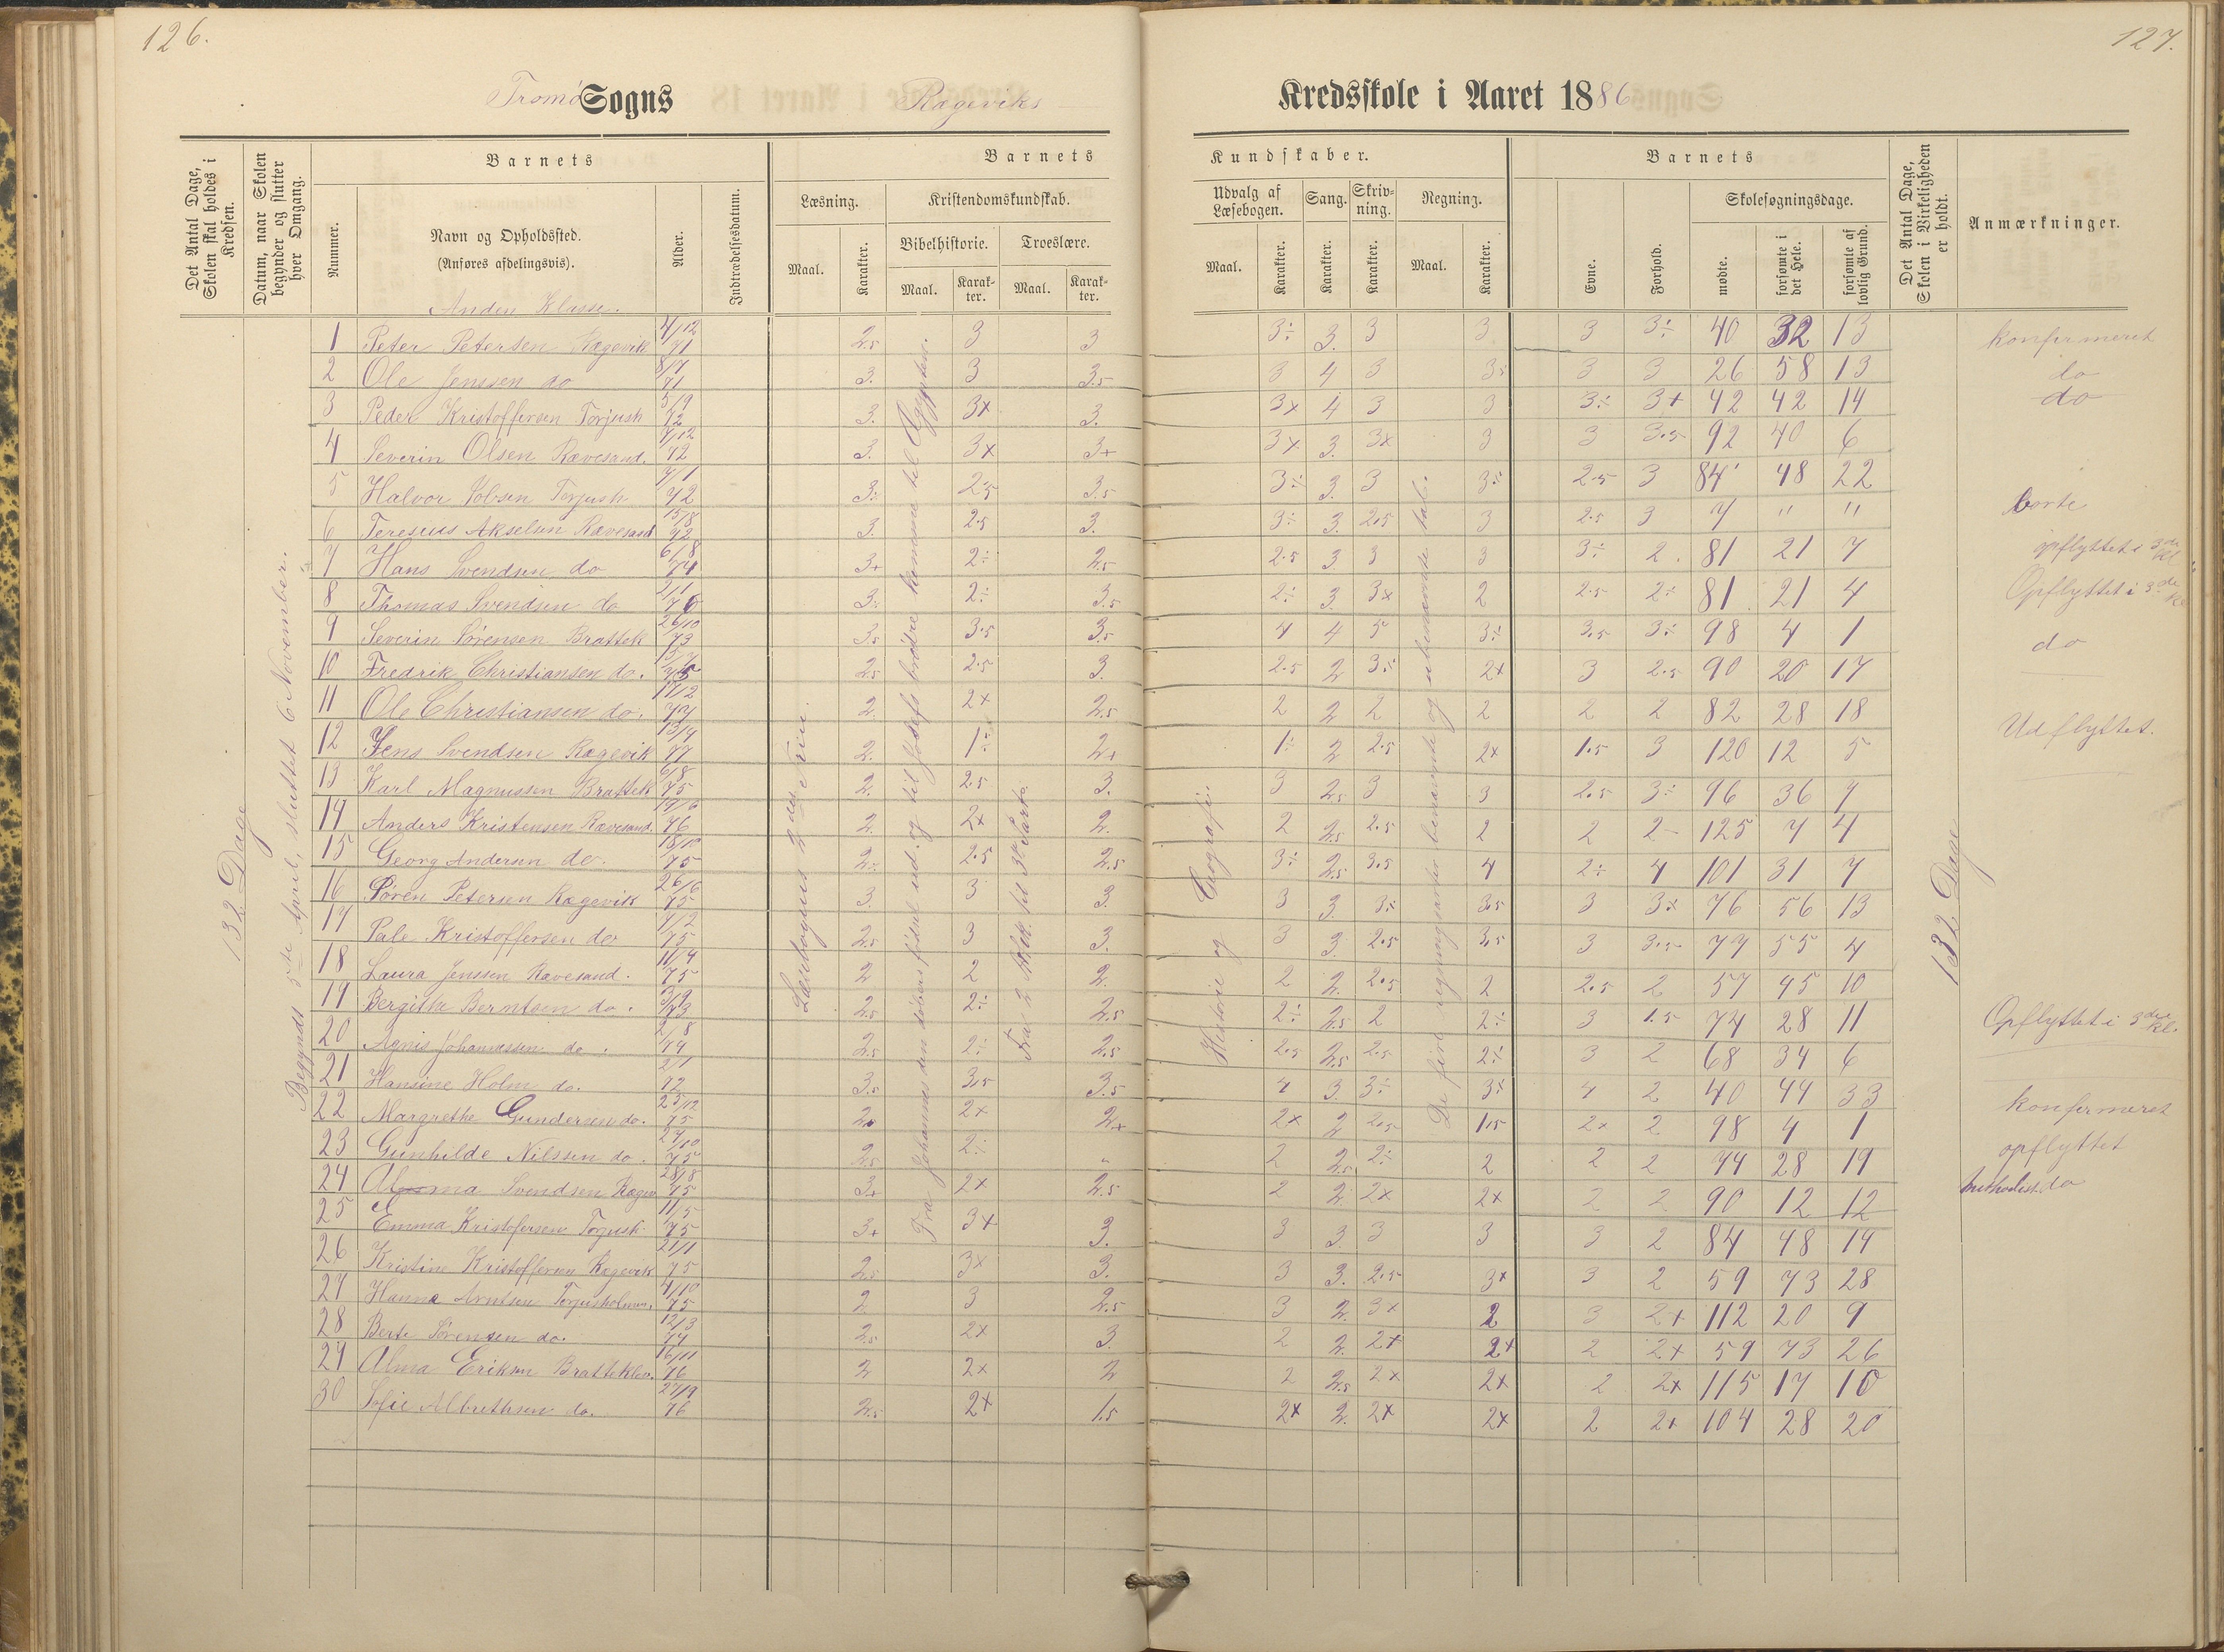 126.
127.
Tromø Sogns Rægeviks Kredsskole i Aaret 1886
Det Antal Dage, Skolen skal holdes i Kredsen.
Datum, naar Skolen begynder og slutter hver Omgang.
Nummer.
Barnets
Navn og Opholdssted.
(Anføres afdelingsvis).
Alder.
Indtrædelsesdatum.
Barnets Kundskaber.
Læsning.
Maal.
Karakter.
Kristendomskundskab.
Bibelhistorie.
Maal.
Karakter.
Troeslære.
Maal.
Karakter.
Udvalg af Læsebogen.
Maal.
Karakter.
Sang.
Karakter.
Skrivning.
Karakter.
Regning.
Maal.
Karakter.
Barnets
Evne.
Forhold.
Skolesøgningsdage.
mødte.
forsømte i det Hele.
forsømte af lovlig Grund.
Det Antal Dage, Skolen i Virkeligheden er holdt.
Anmærkninger.
Anden Klasse.
132 Dage
Begyndt 5te April, sluttet 6 November.
Læsebogens 2den Trin.
Fra Johannes den døbers fødsel ud. og til Josefs brødre komme til Ægypten.
Fra 2 Artik. til 3die Part.
Historie og Geografi.
De fire regningsarter benævnte og ubenævnte tal.
132 Dage
1 Peter Petersen Rægevik 4/12 71 2.5 3 3 3÷ 3. 3 3 3 3÷ 40 32 13 konfirmeret
2 Ole Jenssen do 8/7 71 3. 3 3.5 3 4 3 3.5 3 3 26 58 13 do
3 Peder Kristoffersen Torjush 5/9 72 3. 3x 3. 3x 4 3 3 3÷ 3+ 42 42 14 do
4 Severin Olsen Rævesand. 7/12 72 3. 3x 3+ 3x 3. 3x 3 3 3.5 92 40 6
5 Halvor Jobsen Torjush 7/1 72 3÷ 2.5 3.5 3÷ 3. 3 3÷ 2.5 3 84 48 22
6 Teresius Akselsen Rævesand 15/8 72 3. 2.5 3. 3÷ 3. 2.5 3 2.5 3 7 " " borte
7 Hans Svendsen do 6/8 74 3+ 2÷ 2.5 2.5 3 3 3 3÷ 2. 81 21 7 opflyttet i 3de Kl
8 Thomas Svendsen do 2/1 76 3÷ 2÷ 3.5 2÷ 3. 3x 2 2.5 2÷ 81 21 4 Opflyttet i 3de Kl
9 Severin Sørensen Brattek 26/10 73 3.5 3.5 3.5 4 4 5 3÷ 3.5 3÷ 98 4 1 do
10 Fredrik Christiansen do. 2.5 2.5 3. 2.5 2 3÷ 2x 3 2.5 90 20 17
11 Ole Christiansen do. 17/2 77 2. 2x 2.5 2 2 2 2 2 2 82 28 18 Udflyttet.
12 Jens Svendsen Rægevik 13/4 77 2. 1÷ 2+ 1÷ 2 2.5 2x 1.5 3 120 12 5
13 Karl Magnussen Brattek 6/8 75 2. 2.5 3. 3 2.5 3 3 2.5 3÷ 96 36 9
14 Anders Kristensen Rævesand. 17/6 76 2. 2x 2. 2 2.5 2.5 2 2 2 125 7 4
15 Georg Andersen do. 18/10 75 2÷ 2.5 2.5 3÷ 2.5 3.5 4 2÷ 4 101 31 7
16 Søren Petersen Rægevik 26/6 75 3. 3 3. 3 3. 3÷ 3.5 3 3x 76 56 13
17 Pale Kristoffersen do 7/2 75 2.5 3 3. 3 3. 2.5 3.5 3 3.5 77 55 4
18 Laura Jenssen Rævesand. 11/4 75 2 2 2. 2 2. 2.5 2 2.5 2 57 45 10
19 Bergithe Berntsen do. 3/9 73 2.5 2÷ 2.5 2÷ 2.5 2 2÷ 3 1.5 74 28 11 Opflyttet i 3die Kl.
20 Agnis Johannessen do. 2/8 74 2.5 2÷ 2.5 2.5 2.5 2.5 2÷ 3 2 68 34 6
21 Hansine Holm do. 2/1 72 3.5 3.5 3.5 4 3. 3÷ 3x 4 2 40 44 33 konfirmeret
22 Margrethe Gundersen do. 25/12 75 2. 2x 2+ 2x 2 2.5 1.5 2x 2 98 4 1 opflyttet
23 Gunhilde Nilssen do. 27/10 75 2.5 2÷ 2 2.5 2÷ 2 2 2 74 28 19
24 Svendsen Rægev 28/8 75 3+ 2x 2.5 2 2. 2x 2x 2 2 90 12 12 do
25 Emma Kristofersen Torjush 11/5 75 3+ 3x 3. 3 3. 3 3 3 2 84 48 14
26 Kristine Kristoffersen Rægevik 21/1 75 2.5 3x 3. 3 3. 2.5 3x 3 2 59 73 28
27 Hanna Arntsen Torjusholmen. 4/10 75 2 3 2.5 3 2. 3x 2 3 2+ 112 20 9
28 Berte Sørensen do. 12/3 77 2.5 2x 3. 2 2. 2x 2x 2 2x 59 73 26
29 Alma Eriksen Bratteklev. 16/11 76 2 2x 2 2 2.5 2x 2x 2 2x 115 17 10
30 Sofie Albrethsen do. 27/9 76 2.5 2x 1.5 2x 2. 2x 2x 2 2x 104 28 20